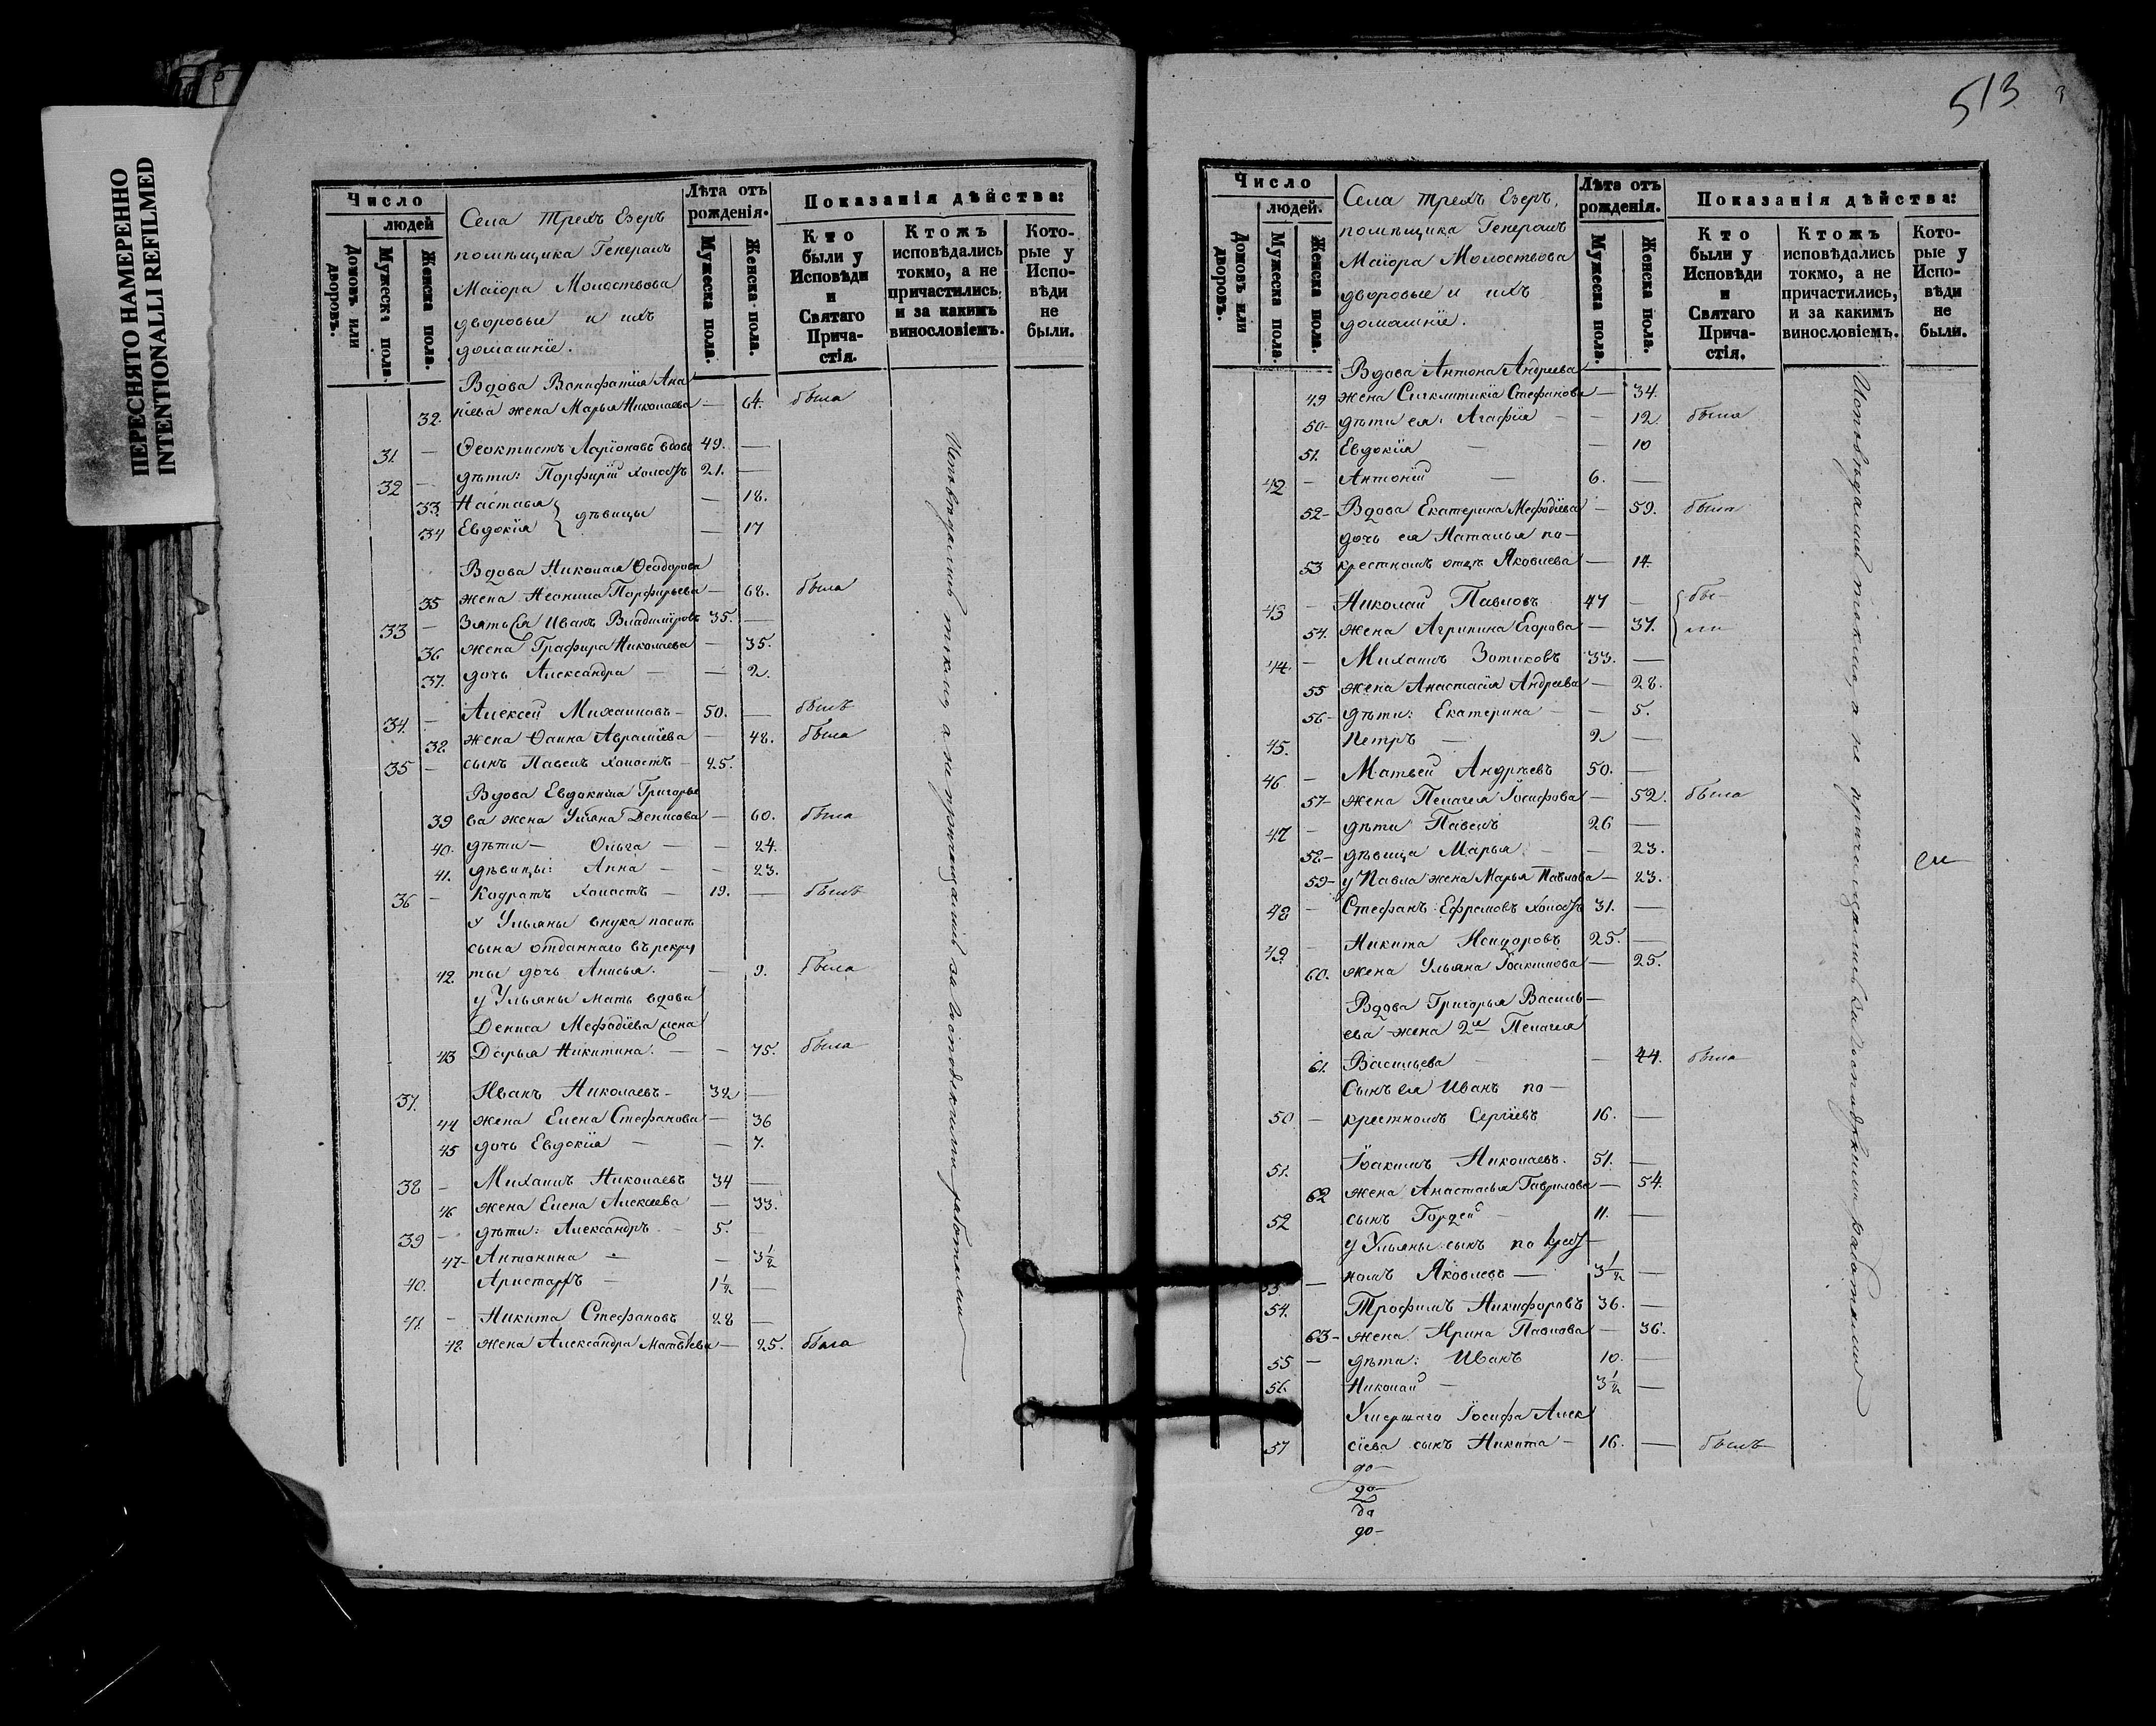 ПЕРЕСНЯТО НАМЕРЕННО
INTENTIONALLI REFILMED
Число
людей
Домовъ или дворовъ.
Мужеска пола.
Женска пола.
Села Трехъ Езеръ
помѣщика Генералъ
Маіора Молоствова
дворовые и ихъ
домашніе.
Лѣта отъ рожденія.
Мужеска пола.
Женска пола.
Показанія дѣйства:
Кто были у Исповѣди и Святаго Прича-стія.
Ктожъ исповѣдались токмо, а не причастились, и за какимъ винословіемъ.
Кото-рые у Испо-вѣди не были.
Вдова Вонифатія Ана
32. ніева жена Марья Николаева — 64. была
31. — Ѳеоктистъ Ларіоновъ вдовъ 49. —
32 — дѣти: Порфирій холостъ 21. —
33. Настасья — 18.
дѣвицы
34 Евдокія — 17
Вдова Николая Ѳеодорова
35 жена Неонила Порфирьева — 68. была
33 — Зять ея Иванъ Владиміровъ 35. —
36 жена Глафира Николаева — 35.
37. дочь Александра — — 2.
34. — Алексей Михаиловъ — 50. — былъ
38. жена Фаина Авраміева — 48. была
35 — сынъ Павелъ холостъ — 25.
Вдова Евдокима Григорье
39 ва жена Ульяна Денисова — 60. была
40. дѣти — Ольга — — 24.
41. дѣвицы: Анна — — 23.
36 — Кодратъ холостъ — 19. — былъ
У Ульяны внука послѣ
сына отданнаго въ рекру
42. ты дочь Анисья. — 9. была
у Ульяны мать вдова
Дениса Мефодіева жена
43 Дарья Никитина. — — 75. была
37. Иванъ Николаевъ — 32 —
44 жена Елена Стефанова — 36
45 дочь Евдокія — — 7.
38 — Михаилъ Николаевъ 34 —
46 жена Елена Алексеева — 33.
39 — дѣти: Александръ — 5. —
47 — Антонина — — 3½
40. Аристархъ — 1½ —
41. — Никита Стефановъ 28 —
48 жена Александра Матвѣева — 25. была
Исповѣдались токмо а не причащались за господскими работами
513
Число
людей.
Домовъ или дворовъ.
Мужеска пола.
Женска пола.
Села Трехъ Езеръ,
помѣщика Генералъ
Маіора Молоствова
дворовые и ихъ
домашніе.
Лѣта отъ рожденія.
Мужеска пола.
Женска пола.
Показанія дѣйства:
Кто были у Исповѣди и Святаго Прича-стія.
Ктожъ исповѣдались токмо, а не причастились, и за какимъ винословіемъ.
Кото-рые у Испо-вѣди не были.
Вдова Антона Андреева
49 жена Сигклитикія Стефанова — 34.
50 — дѣти ея: Агафія — — 12. была
51. Евдокія — — 10
42 — Антоній — 6. —
52 — Вдова Екатерина Мефодіева — 59. была
дочь ея Наталья по —
53 крестномъ отцѣ Яковлева — 14.
43 — Николай Павловъ 47 — бы —
54. жена Агрипина Егорова — 37. ли
44. — Михаилъ Зотиковъ 33. —
55 жена Анастасія Андреева — 28.
56 — дѣти: Екатерина — — 5.
45. Петръ — 2 —
46 — Матвей Андреевъ 50. —
57 — жена Пелагея Іосифова — 52. была
47 — дѣти Павелъ 26 —
58 — дѣвица Марья — — 23.
59 — у Павла жена Марья Павлова — 23.
48 — Стефанъ Ефремовъ холостъ 31. —
49. — Никита Исидоровъ 25. —
60. жена Ульяна Іоакимова — 25.
Вдова Григорья Василь —
ева жена 2я Пелагея
61. Васильева — — 44. была
Сынъ ея Иванъ по —
50 — крестномъ Сергіевъ 16. —
51. Іоакимъ Николаевъ. 51. —
62 жена Анастасья Гаврилова — 54.
52 сынъ Гордей — 11. —
у Ульяны сынъ по крест
53 — номъ Яковлевъ — 3½ —
54. Трофимъ Никифоровъ 36. —
63 — жена Ирина Павлова — 36.
55 — дѣти: Иванъ 10. —
56. Николай — 3½ —
Умершаго Іосифа Алек
57 сіева сынъ Никита — 16. — былъ
Исповѣдались токмо, а не причащались за господскими работами
до —
до —
да
до —